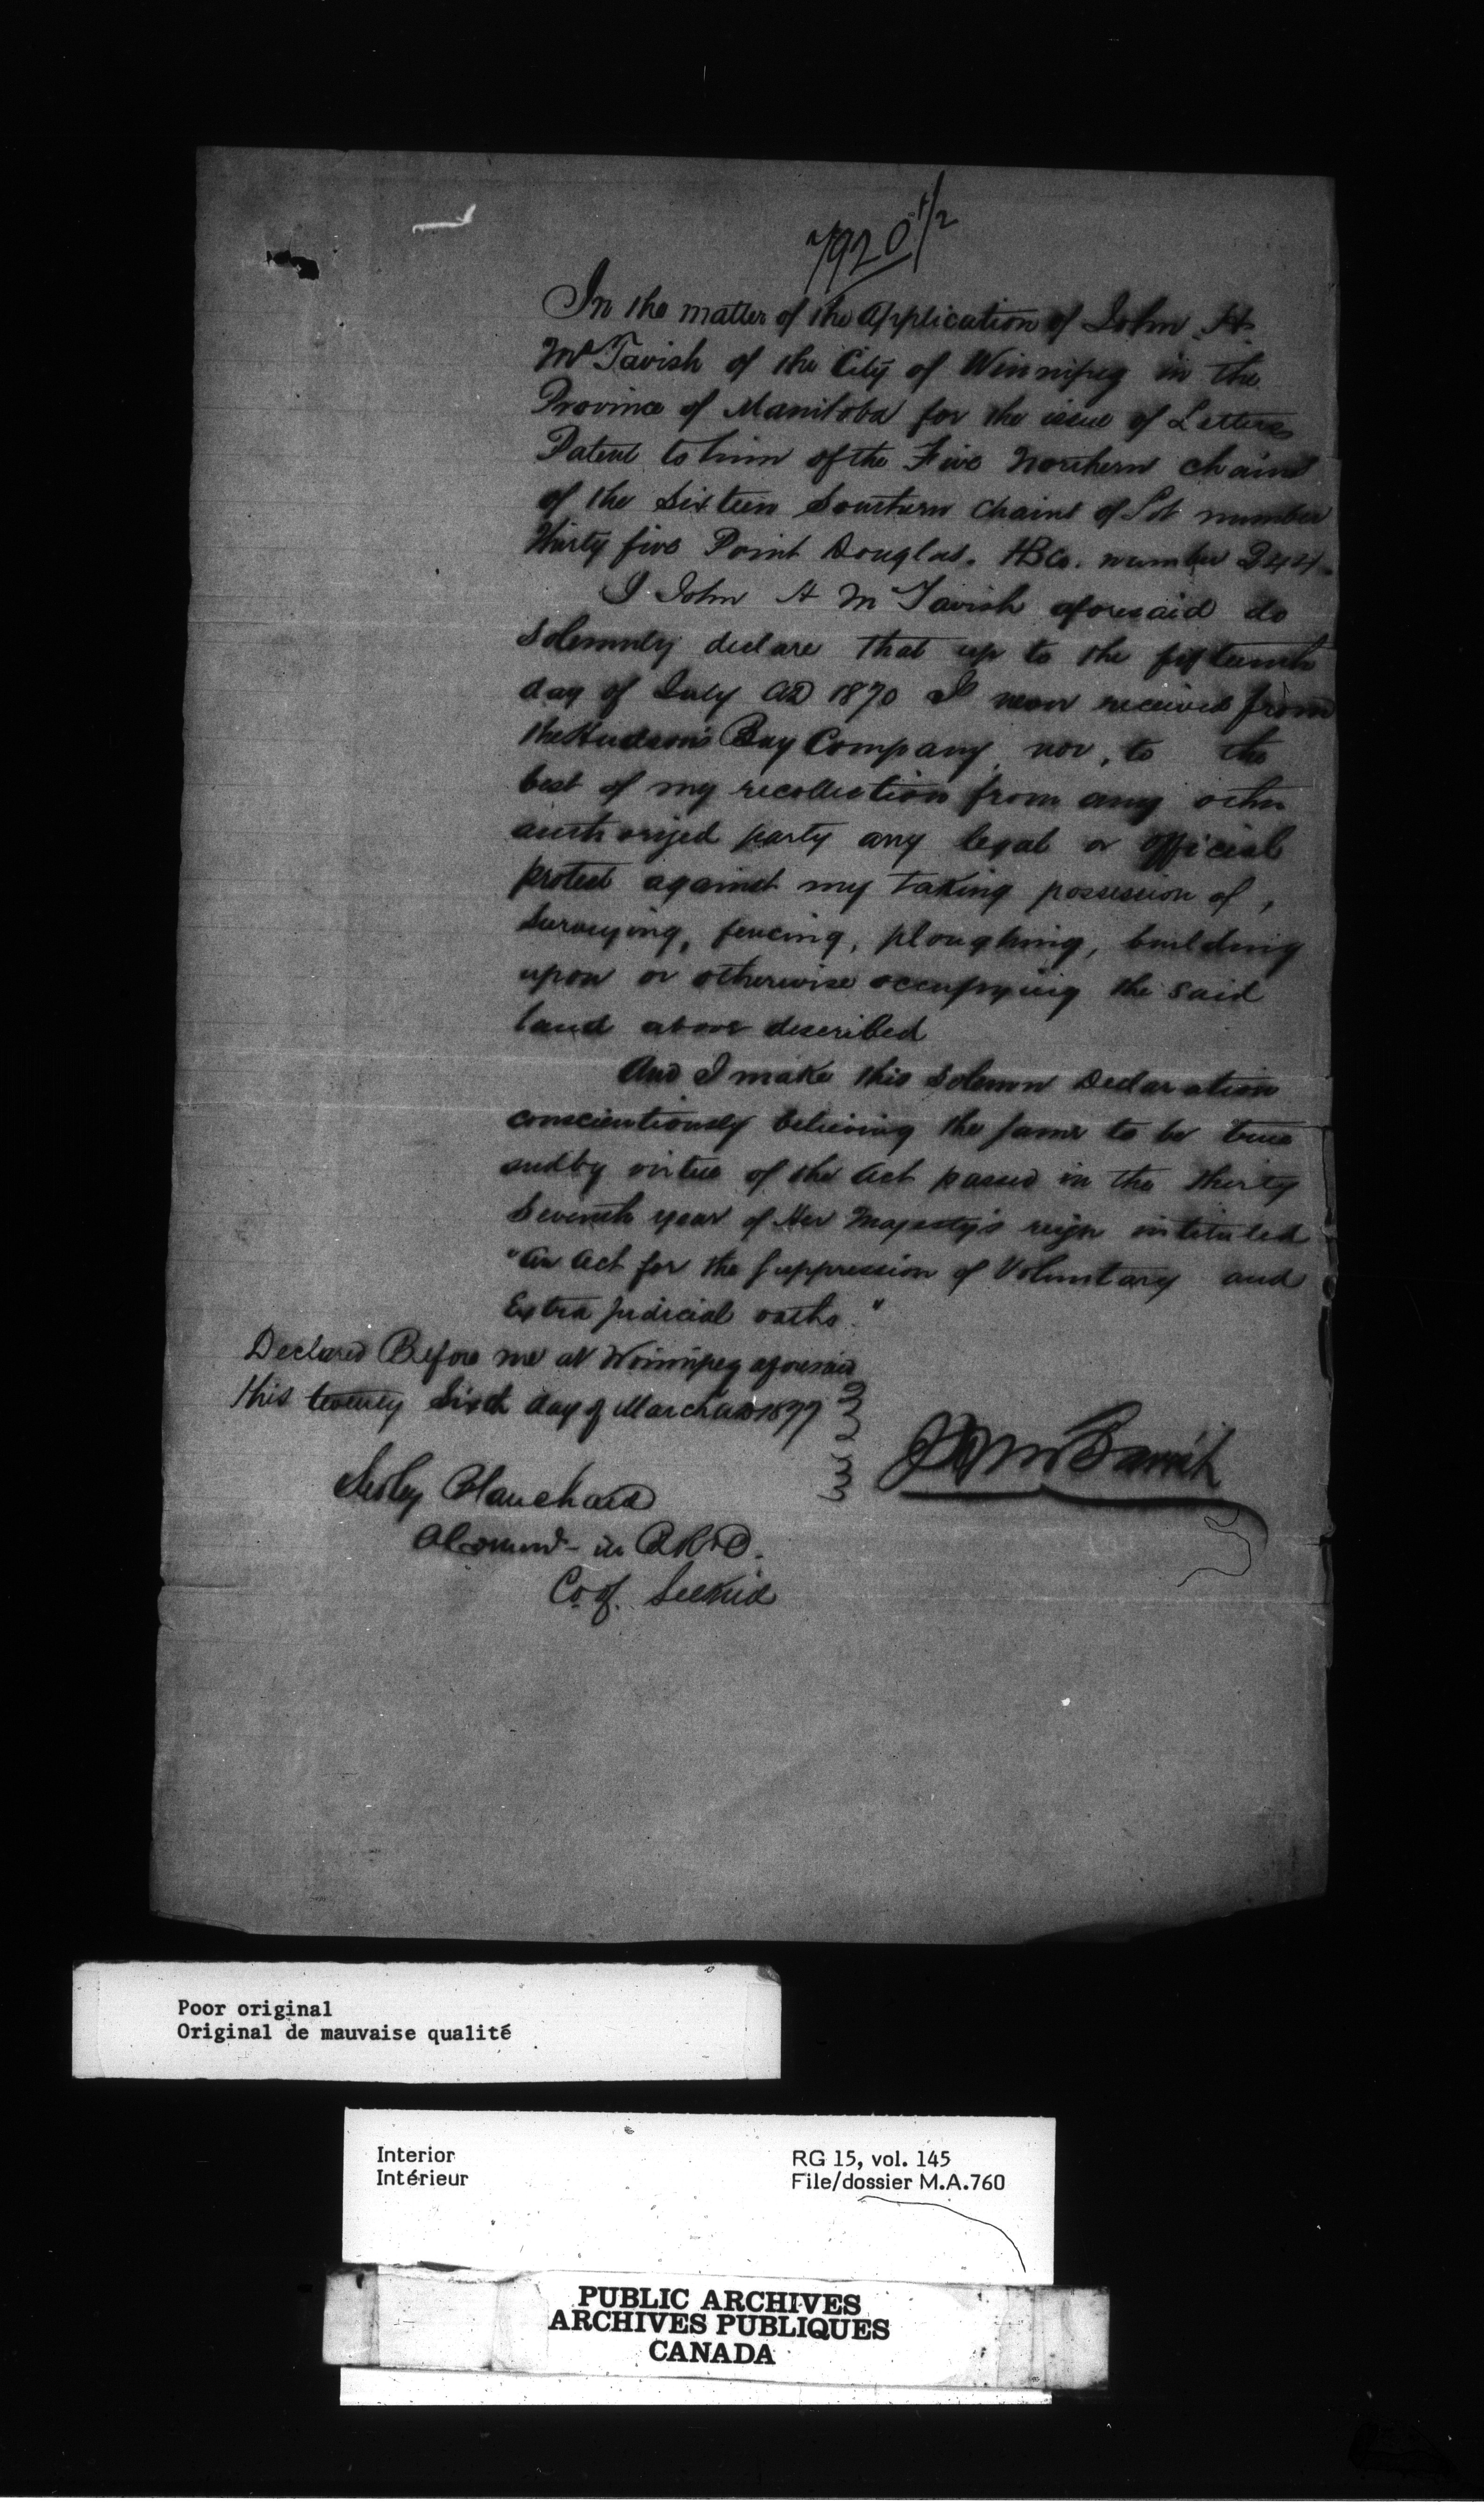 7920 1/2
In the matter of the Application of John H.
McTavish of the City of Winnipeg in the
Province of Manitoba for the issue of Letters
Patent to him of the Five Northern chains
of the Sixteen Southern Chains of Lot number
thirty five Point Douglas. HBCo. number 244.
I John H McTavish aforesaid do
Solemnly declare that up to the fifteenth
day of July AD 1870 I never received from
the Hudson's Bay Company, nor, to the
best of my recollection from any other
authorized party any legal or official
protest against my taking possession of,
Surveying, fencing, ploughing, building
upon or otherwise occupying the said
land above described
And I make this solemn Declaration
conscientiously believing the same to be true
and by virtue of the Act passed in the thirty
Seventh year of Her Majesty's reign intituled
"An Act for the Suppression of Voluntary and
Extra judicial oaths."
Declared Before me at Winnipeg aforesaid
this twenty Sixth day of March AD 1877
JH McTavish
Sedley Blanchard
A Commr in B.R. &c.
Co. of Selkirk
Poor original
Original de mauvaise qualité
Interior
Intérieur
RG 15, vol. 145
File/dossier M.A.760
PUBLIC ARCHIVES
ARCHIVES PUBLIQUES
CANADA